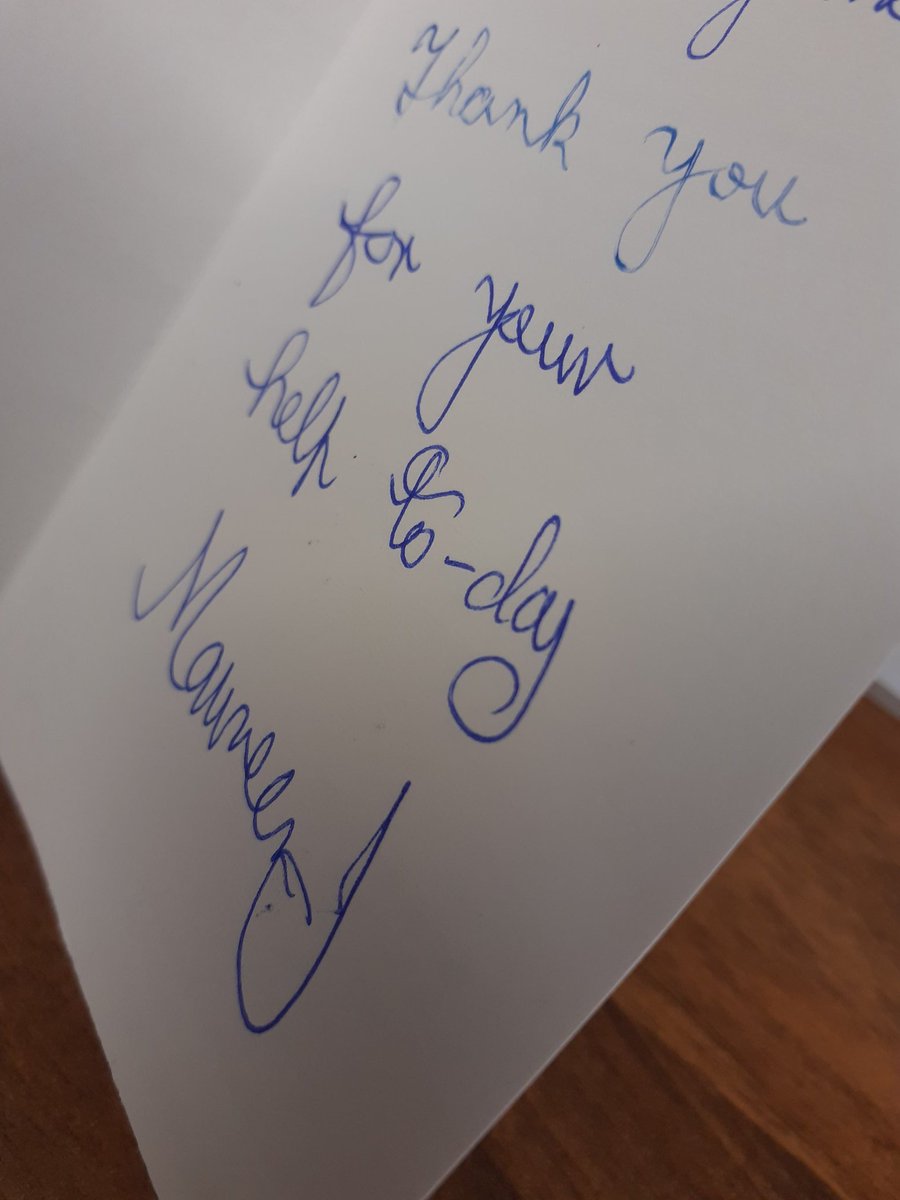 Thank you
for your
help to-day
Maureen